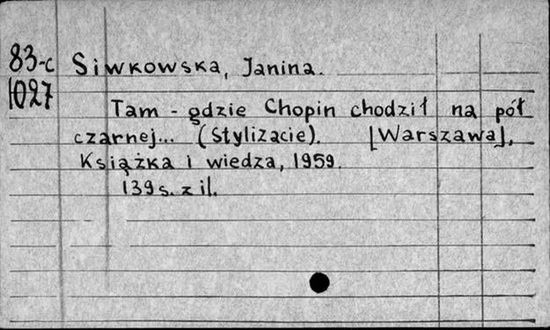 83-c Siwkowska, Janina.
1027
Tam - gdzie Chopin chodził na pół
czarnej... (Stylizacie). [Warszawa],
Książka i wiedza, 1959.
139 s. z il.